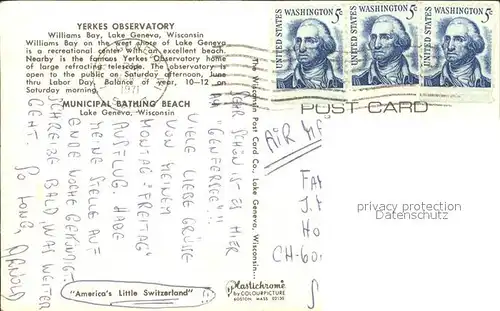 YERKES OBSERVATORY
Williams Bay, Lake Geneva, Wisconsin
Williams Bay on the west shore of Lake Geneva
is a recreational center with an excellent beach.
Nearby is the famous Yerkes Observatory home
of large refracting telescope. The observatory is
open to the public on Saturday afternoon, June
thru Labor Day. Balance of year, 10-12 on
Saturday morning.
1971
MUNICIPAL BATHING BEACH
Lake Geneva, Wisconsin
SEHR SCHÖN IST ES HIER
AM "GENFERSEE"!!
VIELE LIEBE GRÜSSE
VON MEINEM
MONTAG "FREITAG"
AUSFLUG. HABE
MEINE STELLE AUF
ENDE WOCHE GEKÜNDIGT.
SCHREIBE BALD, WAS WEITER
GEHT. SO LONG, ARNOLD
"America's Little Switzerland"
The Wisconsin Post Card Co., Lake Geneva, Wisconsin
Plastichrome
by COLOURPICTURE
BOSTON MASS 02130
UNITED STATES
WASHINGTON 5c
UNITED STATES
WASHINGTON 5c
UNITED STATES
WASHINGTON 5c
POST CARD
AIR
CH-600
privacy protection
Datenschutz